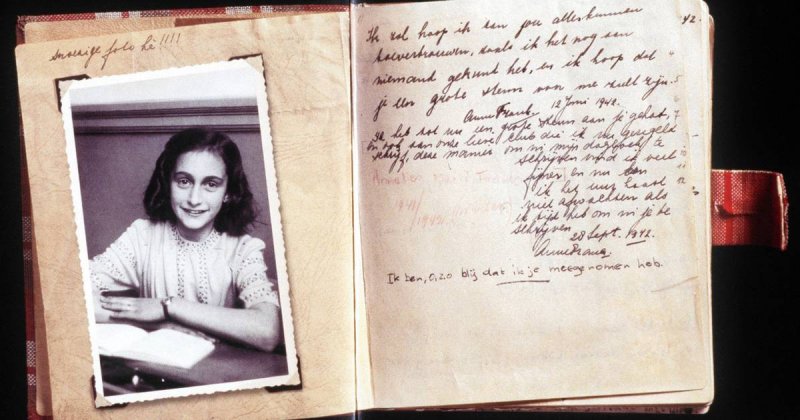 snoezige foto hè !!!!
42.
Ik zal hoop ik aan jou alles kunnen
toevertrouwen, zoals ik het nog aan
niemand gekund heb, en ik hoop dat
je een grote steun van me zult zijn.
Anne Frank. 12 Juni 1942.
Ik heb tot nu een grote steun aan je gehad,
en ook aan onze lieve club die ik nu geregeld
schrijf, deze manier om in mijn dagboek te
schrijven vind ik veel
fijner en nu kan
ik het uur haast
niet afwachten als
ik tijd heb om in je te
schrijven.
28 Sept. 1942.
Anne Frank.
Ik ben, o, zo blij dat ik je meegenomen heb.